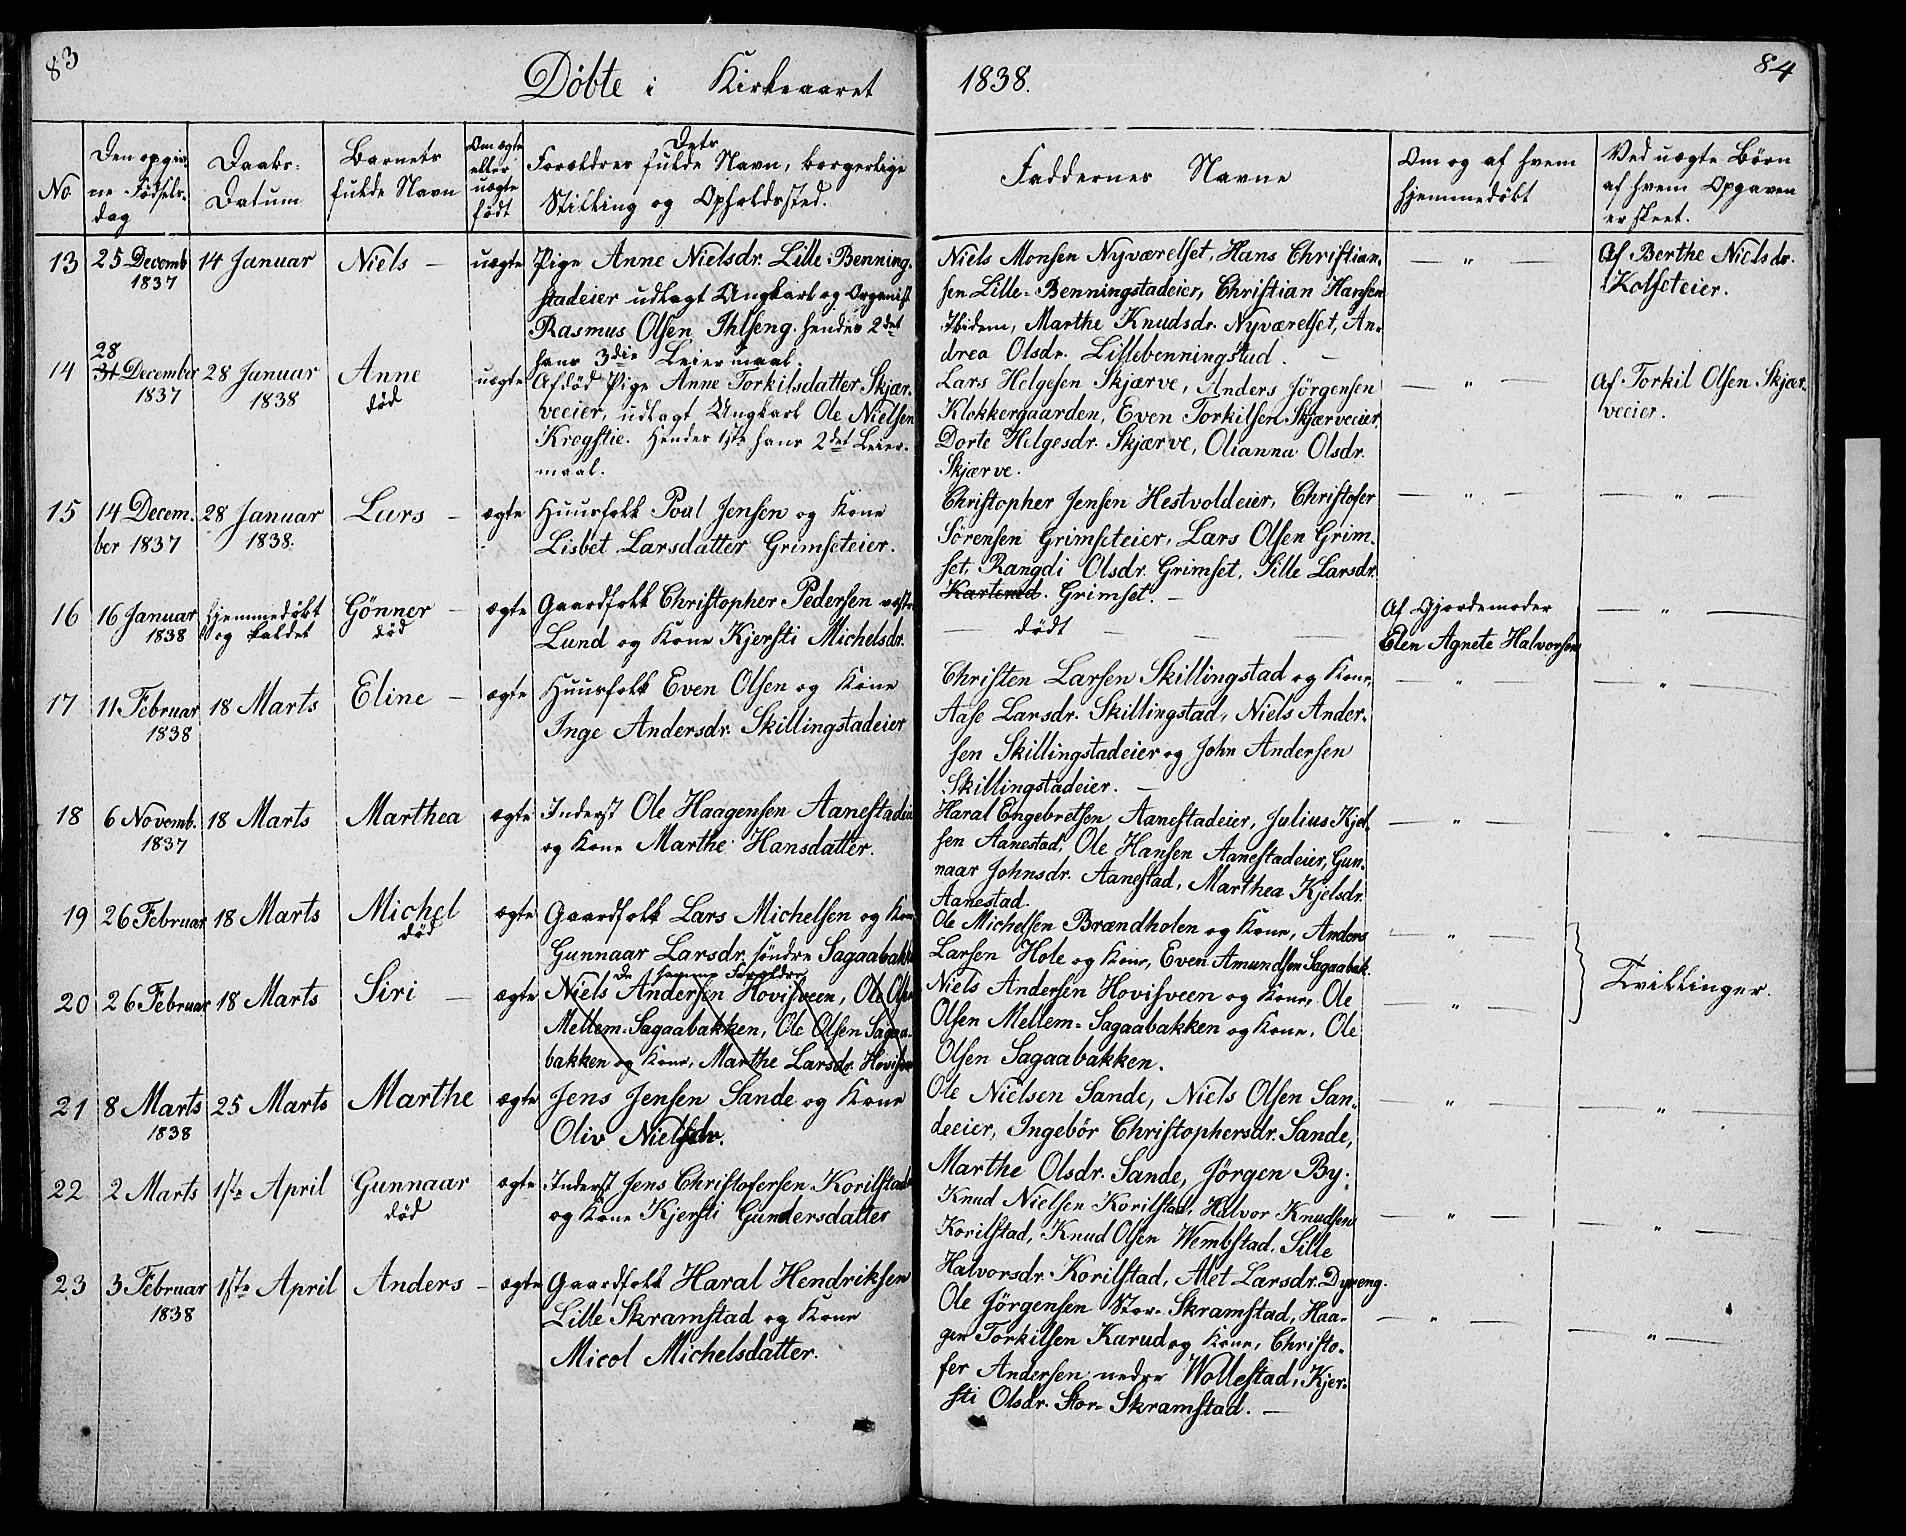 83
Döbte i Kirkeaaret 1838.
84
No
Den opgiv-
ne Fødsels-
dag
Daabs-
Datum
Barnets
fulde Navn
Om ægte
eller
uægte
født
Dets
Forældres fulde Navn, borgerlige
Stilling og Opholdssted.
Faddernes Navne
Om og af hvem
hjemmedøbt
Ved uægte Børn
af hvem Opgaven
er skeet.
13
25 Decemb
1837
14 Januar
Niels –
uægte
Pige Anne Nielsdr. Lille-Benning-
stadeier udlagt Ungkarl og Organist
Rasmus Olsen Ihlseng. hendes 2det
hans 3die Leiermaal.
Niels Monsen Nyværelset, Hans Christian-
sen Lille-Benningstadeier, Christian Hansen
Ibidem, Marthe Knudsdr. Nyværelset, An-
drea Olsdr. Lillebenningstad. –
— " —
Af Berthe Nielsdr.
Kolseteier.
14
28
31 December
1837
28 Januar
1838
Anne
død
uægte
Afdød Pige Anne Torkilsdatter Skjær-
veeier, udlagt Ungkarl Ole Nielsen
Krogstie. Hendes 1ste hans 2det Leier-
maal.
Lars Helgesen Skjærve, Anders Jörgensen
Klokkergaarden, Even Torkilsen Skjærveeier
Dorte Helgesdr. Skjærve, Olianna Olsdr.
Skjærve.
— " —
Af Torkil Olsen Skjær-
veeier.
15
14 Decem-
ber 1837
28 Januar
1838.
Lars –
ægte
Huusfolk Poul Jensen og Kone
Lisbet Larsdatter Grimseteier.
Christopher Jensen Hestvoldeier, Christofer
Sörensen Grimseteier, Lars Olsen Grim-
set, Rangdi Olsdr. Grimset, Sille Larsdr.
Grimset. –
— " —
— " —
16
16 Januar
1838
hjemmedøbt
og kaldet
Gönner –
død
ægte
Gaardfolk Christopher Pedersen vestre
Lund og Kone Kjersti Michelsdr.
— dødt — — —
Af Gjordemoder
Elen Agnete Halvorsen
— " —
17
11 Februar
1838
18 Marts
Eline –
ægte
Huusfolk Even Olsen og Kone
Inge Andersdr. Skillingstadeier
Christen Larsen Skillingstad og Kone,
Aase Larsdr. Skillingstad, Niels Ander-
sen Skillingstadeier og John Andersen
Skillingstadeier. –
— " —
— " —
18
6 Novemb.
1837
18 Marts
Marthea
ægte
Inderst Ole Haagensen Aanestadeier
og Kone Marthe Hansdatter.
Haral Engebretsen Aanestadeier, Julius Kjel-
sen Aanestad, Ole Hansen Aanestadeier, Gun-
naar Johnsdr. Aanestad, Marthea Kjelsdr.
Aanestad.
— " —
" —
19
26 Februar
18 Marts
Michel
død
ægte
Gaardfolk Lars Michelsen og Kone
Gunnaar Larsdr. søndre Sagaabakke
Ole Michelsen Brændholen og Kone, Anders
Larsen Hole og Kone, Even Amundsen Sagaabak.
— " —
Tvillinger.
20
26 Februar
18 Marts
Siri –
ægte
De samme Forældre
Niels Andersen Hovisveen, Ole Olsen
Mellem-Sagaabakken, Ole Olsen Sagaa-
bakken og Kone, Marthe Larsdr. Hovisve
Niels Andersen Hovisveen og Kone, Ole
Olsen Mellem-Sagaabakken og Kone, Ole
Olsen Sagaabakken.
— " —
21
8 Marts
1838
25 Marts
Marthe
ægte
Jens Jensen Sande og Kone
Oliv Nielsdr.
Ole Nielsen Sande, Niels Olsen San-
deeier, Ingebör Christophersdr. Sande,
Marthe Olsdr. Sande, Jörgen By.
— " —
— " —
22
2 Marts
1ste April
Gunnaar
død
ægte
Inderst Jens Christofersen Korilstad
og Kone Kjersti Gundersdatter
Knud Nielsen Korilstad, Halvor Knudsen
Korilstad, Knud Olsen Wembstad, Sille
Halvorsdr. Korilstad, Alet Larsdr. Dyreng.
— " —
— " —
23
3 Februar
1838
1ste April
Anders –
ægte
Gaardfolk Haral Hendriksen
Lille Skramstad og Kone
Micol Michelsdatter.
Ole Jörgensen Stor-Skramstad, Haa-
gen Torkilsen Karud og Kone, Christo-
fer Andersen nedre Wollestad, Kjer-
sti Olsdr. Stor-Skramstad. —
— " —
— " —